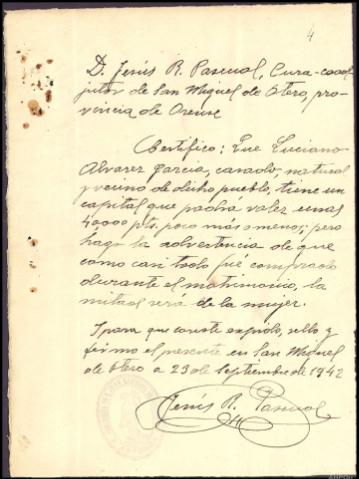 4
D. Jesús R. Pascual, Cura-coad
jutor de San Miguel de Otero, pro-
vincia de Orense
Certifico: Que Luciano
Alvarez Garcia, casado, natural
y vecino de dicho pueblo, tiene un
capital que podrá valer unas
40000 pts. poco más o menos; pero
hago la advertencia de que
como casi todo fué comprado
durante el matrimonio, la
mitad será de la mujer.
Y para que conste expido, sello y
firmo el presente en San Miguel
de Otero a 23 de Septiembre de 1942
Jesús R. Pascual